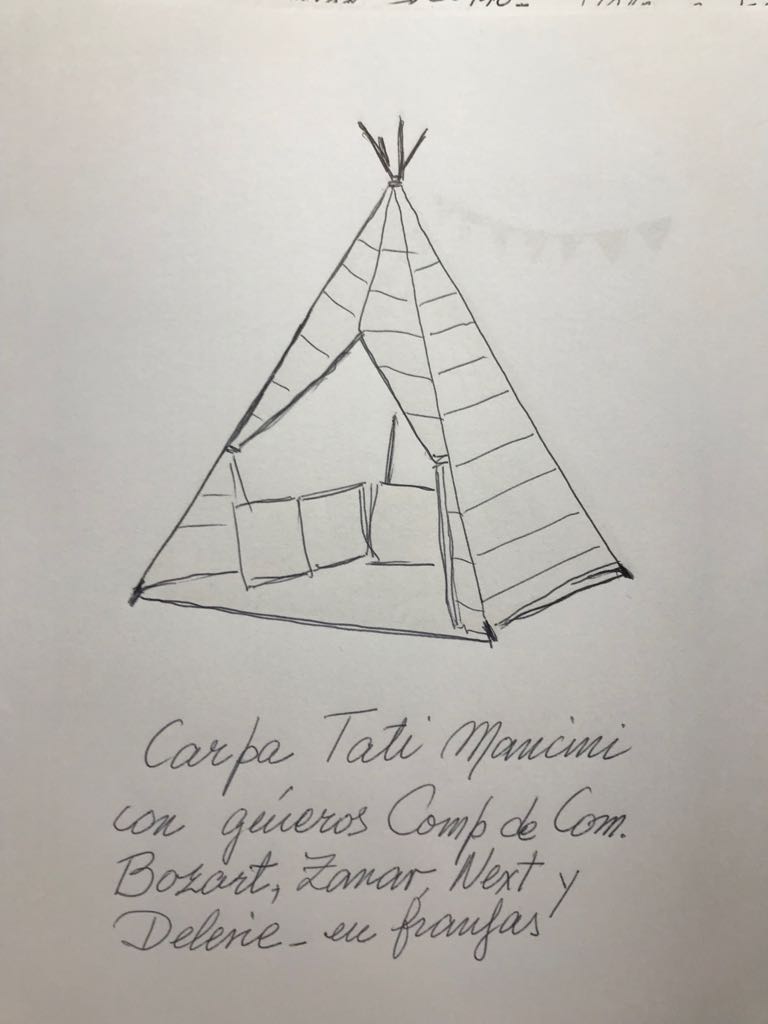 Carpa Tati Mancini
con géneros Comp de Com.
Bozart, Zanar, Next y
Delerie - en franjas